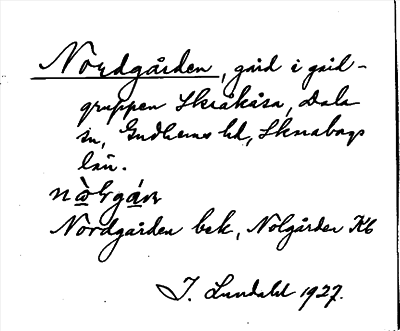 Nordgården, gård i gård-
gruppen Skråkåsa, Dala
sn, Gudhems hd, Skarabogs
län.
Nordgården bek, Nolgården Kb
I. Lundahl 1927.